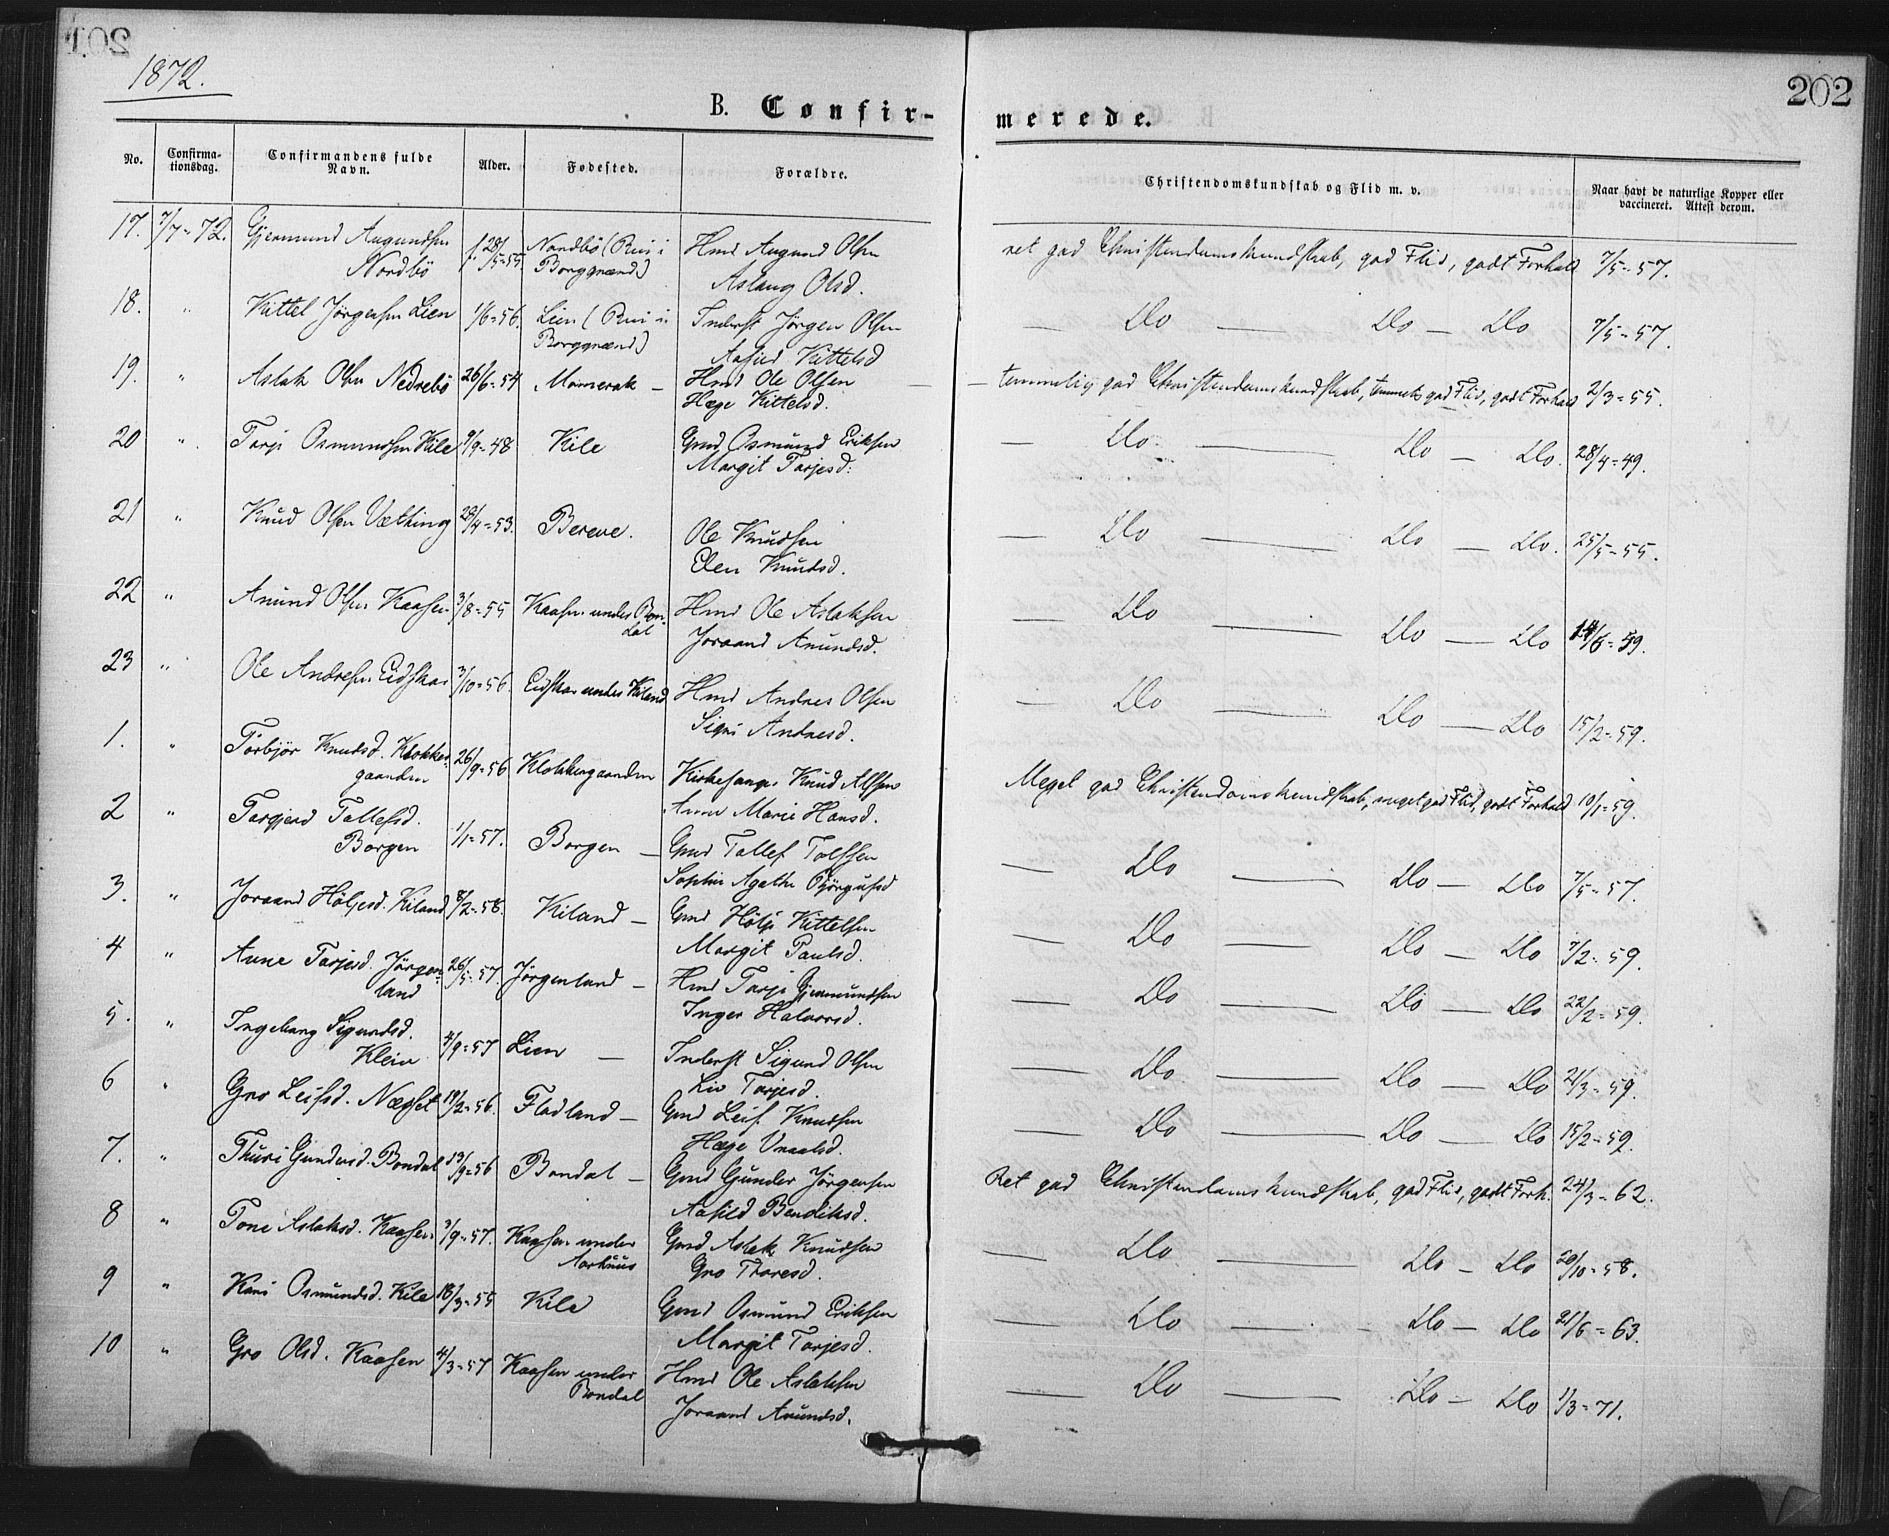 202
1872.
B. Confir-
merede.
No.
Confirma-
tionsdag.
Confirmandens fulde
Navn.
Alder.
Fødested.
Forældre.
Christendomskundskab og Flid m. v.
Naar havt de naturlige Kopper eller
vaccineret. Attest derom.
17. 7/7-72. Gjermund Augundsen f. 28/5-55. Nordbö (Rui i Hmd Augund Olsen ret god Christendomskundskab, god Flid, godt Forhold 7/5-57.
Nordbö Borggrænd) Aslaug Olsd.
18. " Kittel Jörgensen Lien 1/6-56. Lien (Rui i Inderst Jörgen Olsen — Do — Do — Do 7/5-57.
Borggrænd) Aasild Kittelsd
19. " Aslak Olsen Nedrebö 26/6-54 Momerak — Hmd Ole Olsen — temmelig god Christendomskundskab, temmelig god Flid, godt Forhold 2/3-55.
Hæge Kittelsd.
20 " Tarje Osmundsen Kile 9/9-48 Kile Gmd Osmund Eriksen — Do — Do — Do. 28/4-49.
Margit Tarjesd.
21 " Knud Olsen Vething 28/4-53. Bereve. Ole Knudsen — Do — Do — Do. 25/5-55.
Elen Knudsd.
22 " Anund Olsen Kaasen 3/8-55 Kaasen under Bon- Hmd Ole Aslaksen — Do — Do — Do 14/6-59.
dal Joraand Anundsd.
23 " Ole Andresen Eidskas 3/10-56. Eidskas under Kiland Hmd Andres Olsen — Do — Do — Do 15/2-59.
Signi Andresd.
1. " Torbjör Knudsd. Klokker- 26/9-56 Klokkergaarden Kirkesanger Knud Alfsen Meget god Christendomskundskab, meget god Flid, godt Forhold 10/1-59.
gaarden Anne Marie Hansd.
2 " Targjerd Tallefsd. 1/1-57. Borgen — Gmd Tallef Tolfsen — Do — Do — Do 7/5-57.
Borgen Sophie Agathe Björgufsd
3. " Joraand Höljesd. Kiland 8/2-58. Kiland — Gmd Hölje Kittelsen — Do — Do — Do 7/2-59.
Margit Paulsd.
4 " Anne Tarjesd. Jörgen- 26/5-57. Jörgenland — Hmd Tarje Gjermundsen — Do — Do — Do 22/2-59.
land Inger Halvorsd.
5. " Ingeborg Sigurdsd. 4/9-57 Lien — Inderst Sigurd Olsen — Do — Do — Do 21/3-59.
Kleiv Liv Tarjesd.
6 " Gro Leifsd. Næsset 19/2-56. Fladland — Gmd Leif Knudsen — Do — Do — Do 15/2-59.
Hæge Vraalsd.
7. " Thuri Gundersd. Bondal 13/9-56 Bondal — Gmd Gunder Jörgensen Ret god Christendomskundskab, god Flid, godt Forh. 24/3-62.
Aasild Bendiksd.
8 " Tone Aslaksd. Kaasen 3/9-57. Kaasen under Gmd Aslak Knudsen — Do — Do — Do 20/10-58.
Aarhuus Gro Thoresd.
9 " Kari Osmundsd. Kile 18/3-55 Kile Gmd Osmund Eriksen — Do — Do — Do 21/6-63.
Margit Tarjesd.
10 " Gro Olsd. Kaasen 4/3-57 Kaasen under Hmd Ole Aslaksen — Do — Do — Do 1/3-71.
Bondal Joraand Anundsd.